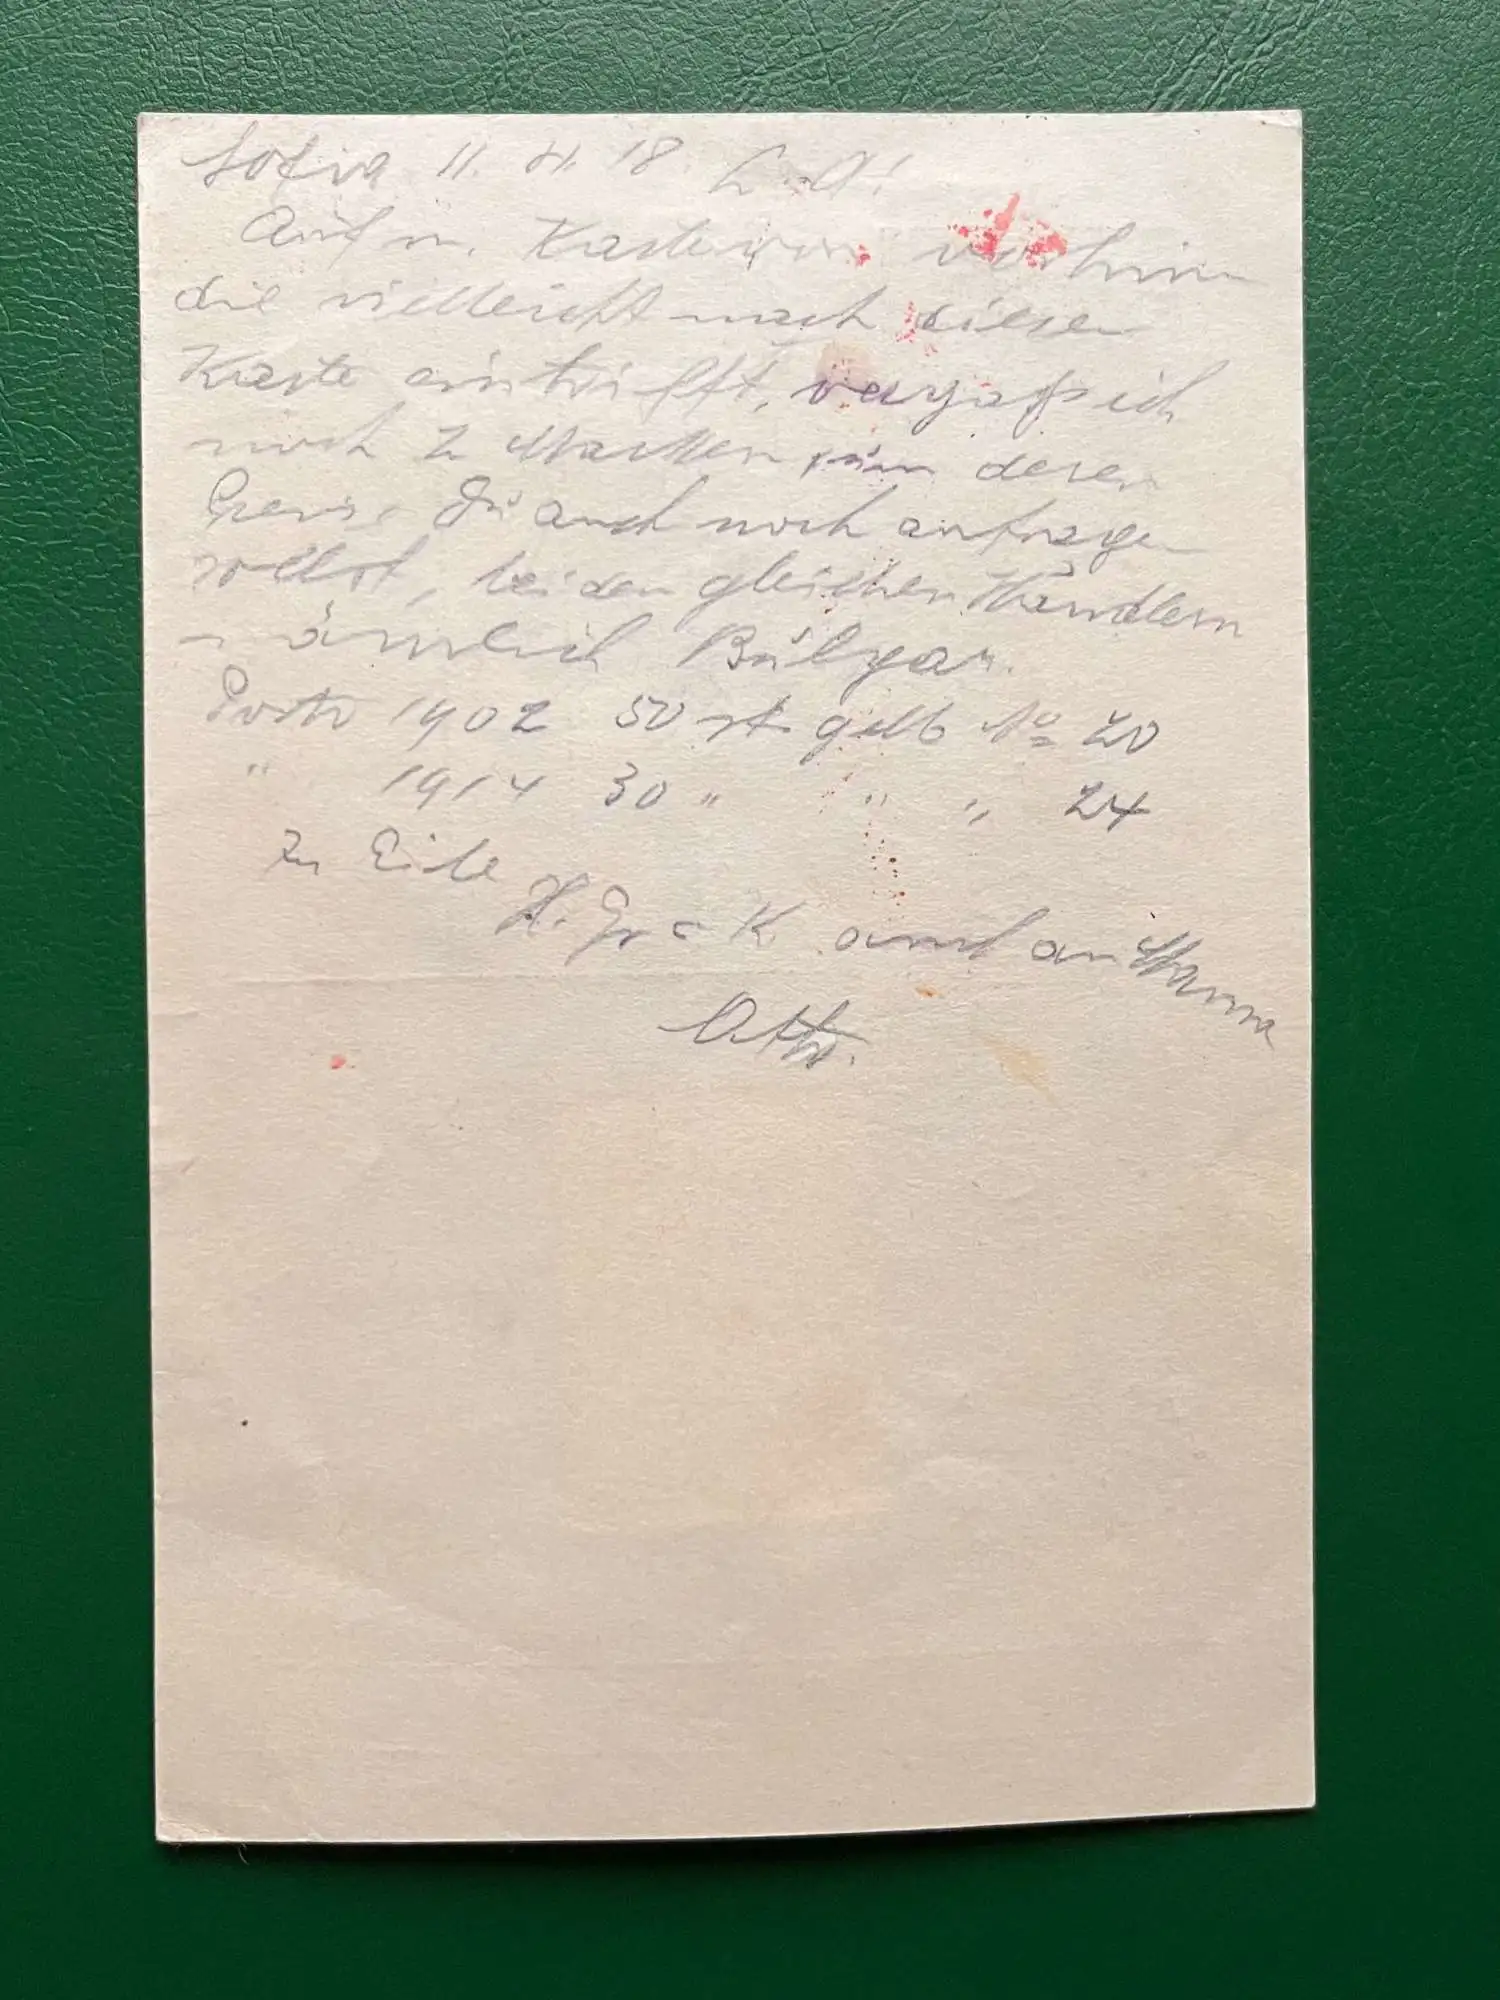 Sofia 11. VI. 18. L. A!
Auf m. Karte von vorhin
die vielleicht nach dieser
Karte eintrifft, vergaß ich
noch 2 Marken um deren
Preise Du auch noch anfragen
sollst, bei den gleichen Händlern
nämlich Bulgar.
Porto 1902 50 st. gelb No 20
" 1914 30 " " " 24
In Eile
H. Gr & K auch an Mama
Otto.